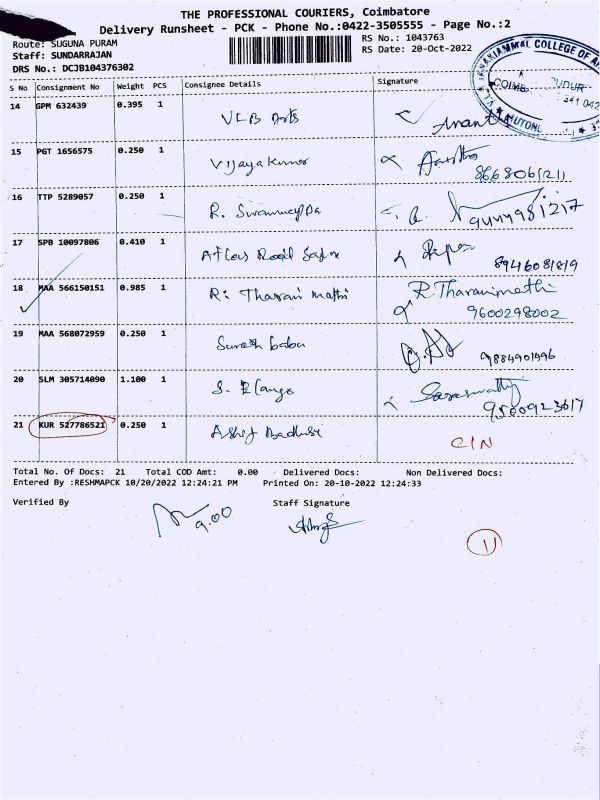 THE PROFESSIONAL COURIERS, Coimbatore
Delivery Runsheet - PCK - Phone No.:0422-3505555 - Page No.:2
Route: SUGUNA PURAM
RS No.: 1043763
Staff: SUNDARRAJAN
RS Date: 20-Oct-2022
DRS No.: DCJB104376302
COLLEGE OF
S No Consignment No Weight PCS Consignee Details Signature
14 GPM 632439 0.395 1 VLB Arts
15 PGT 1656575 0.250 1 Vijayakumar
8668061211
16 TTP 5289057 0.250 1 R.
17 SPB 10097806 0.410 1
8946081819
18 MAA 566150151 0.985 1 R. Tharani mathi R. Tharanimathi
9600298002
19 MAA 568072959 0.250 1 Suresh babu
9884901996
20 SLM 305714090 1.100 1 S. Elango Saraswathy
9500923617
21 KUR 527786521 0.250 1
Total No. Of Docs: 21 Total COD Amt: 0.00 Delivered Docs: Non Delivered Docs:
Entered By :RESHMAPCK 10/20/2022 12:24:21 PM Printed On: 20-10-2022 12:24:33
Verified By Staff Signature
9.00